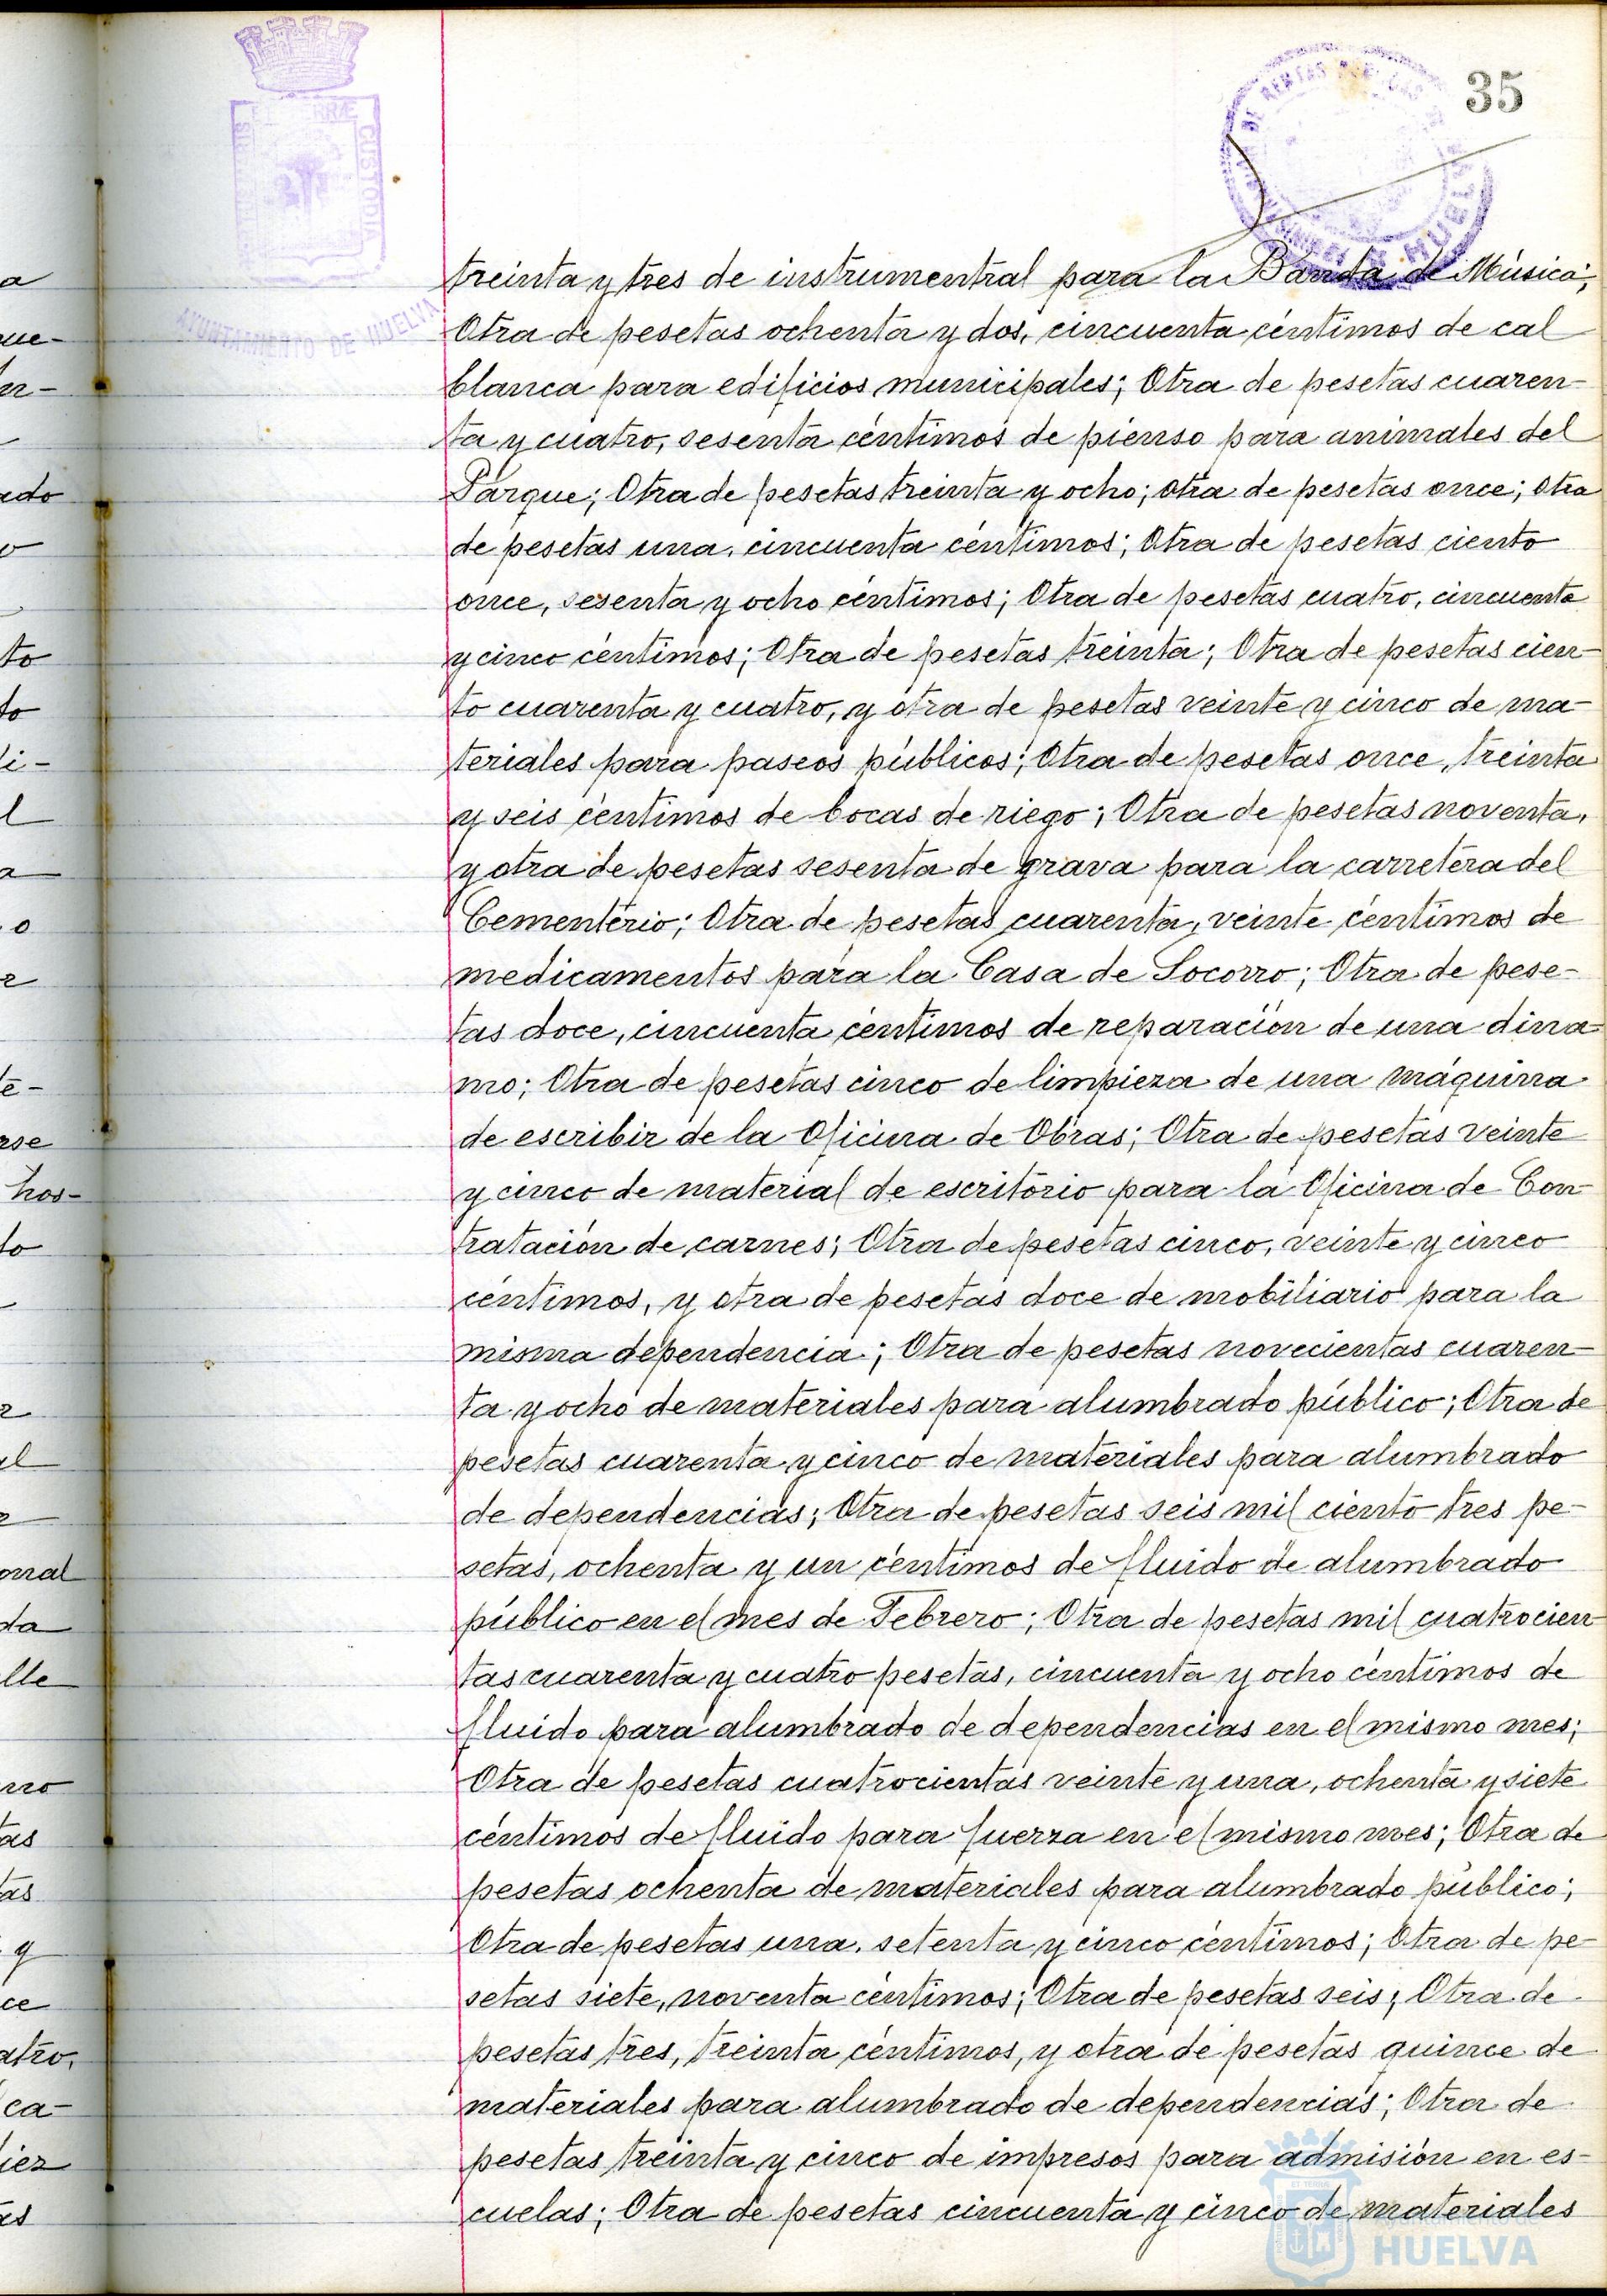 35
treinta y tres de instrumentral para la Banda de Música;
Otra de pesetas ochenta y dos, cincuenta céntimos de cal
blanca para edificios municipales; Otra de pesetas cuaren-
ta y cuatro, sesenta céntimos de pienso para animales del
Parque; Otra de pesetas treinta y ocho; otra de pesetas once; otra
de pesetas una, cincuenta céntimos; Otra de pesetas ciento
once, sesenta y ocho céntimos; Otra de pesetas cuatro, cincuenta
y cinco céntimos; Otra de pesetas treinta; Otra de pesetas cien-
to cuarenta y cuatro, y otra de pesetas veinte y cinco de ma-
teriales para paseos públicos; Otra de pesetas once, treinta
y seis céntimos de bocas de riego; Otra de pesetas noventa,
y otra de pesetas sesenta de grava para la carretera del
Cementerio; Otra de pesetas cuarenta, veinte céntimos de
medicamentos para la Casa de Socorro; Otra de pese-
tas doce, cincuenta céntimos de reparación de una dina
mo; Otra de pesetas cinco de limpieza de una máquina
de escribir de la Oficina de Obras; Otra de pesetas veinte
y cinco de material de escritorio para la Oficina de Con-
tratación de carnes; Otra de pesetas cinco, veinte y cinco
céntimos, y otra de pesetas doce de mobiliario para la
misma dependencia; Otra de pesetas novecientas cuaren-
ta y ocho de materiales para alumbrado público; Otra de
pesetas cuarenta y cinco de materiales para alumbrado
de dependencias; Otra de pesetas seis mil ciento tres pe-
setas, ochenta y un céntimos de fluido de alumbrado
público en el mes de Febrero; Otra de pesetas mil cuatrocien-
tas cuarenta y cuatro pesetas, cincuenta y ocho céntimos de
fluido para alumbrado de dependencias en el mismo mes;
Otra de pesetas cuatrocientas veinte y una, ochenta y siete
céntimos de fluido para fuerza en el mismo mes; Otra de
pesetas ochenta de materiales para alumbrado público;
Otra de pesetas una, setenta y cinco céntimos; Otra de pe-
setas siete, noventa céntimos; Otra de pesetas seis; Otra de
pesetas tres, treinta céntimos, y otra de pesetas quince de
materiales para alumbrado de dependencias; Otra de
pesetas treinta y cinco de impresos para admisión en es-
cuelas; Otra de pesetas cincuenta y cinco de materiales
AYUNTAMIENTO DE HUELVA
CUSTODIA
HUELVA